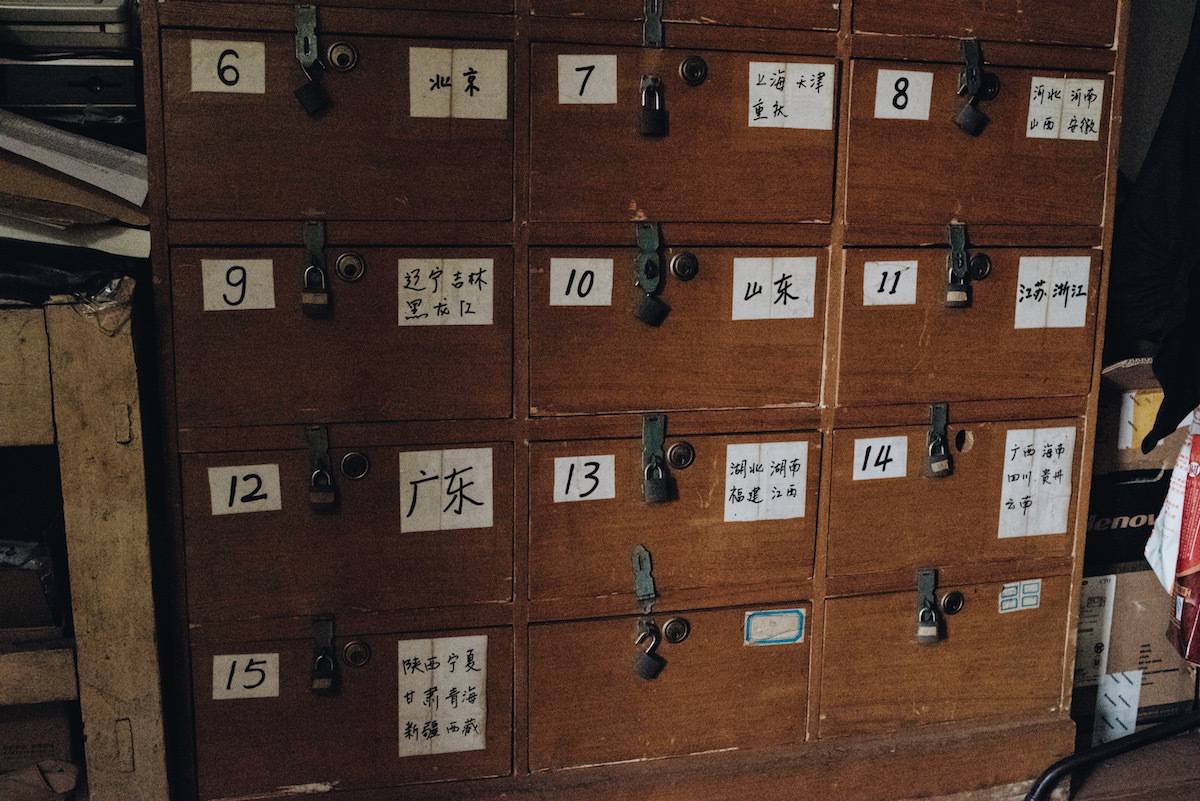 6
北京
7
上海 天津
重庆
8
河北 河南
山西 安徽
9
辽宁 吉林
黑龙江
10
山东
11
江苏 浙江
12
广东
13
湖北 湖南
福建 江西
14
广西 海南
四川 贵州
云南
15
陕西 宁夏
甘肃 青海
新疆 西藏
lenovo